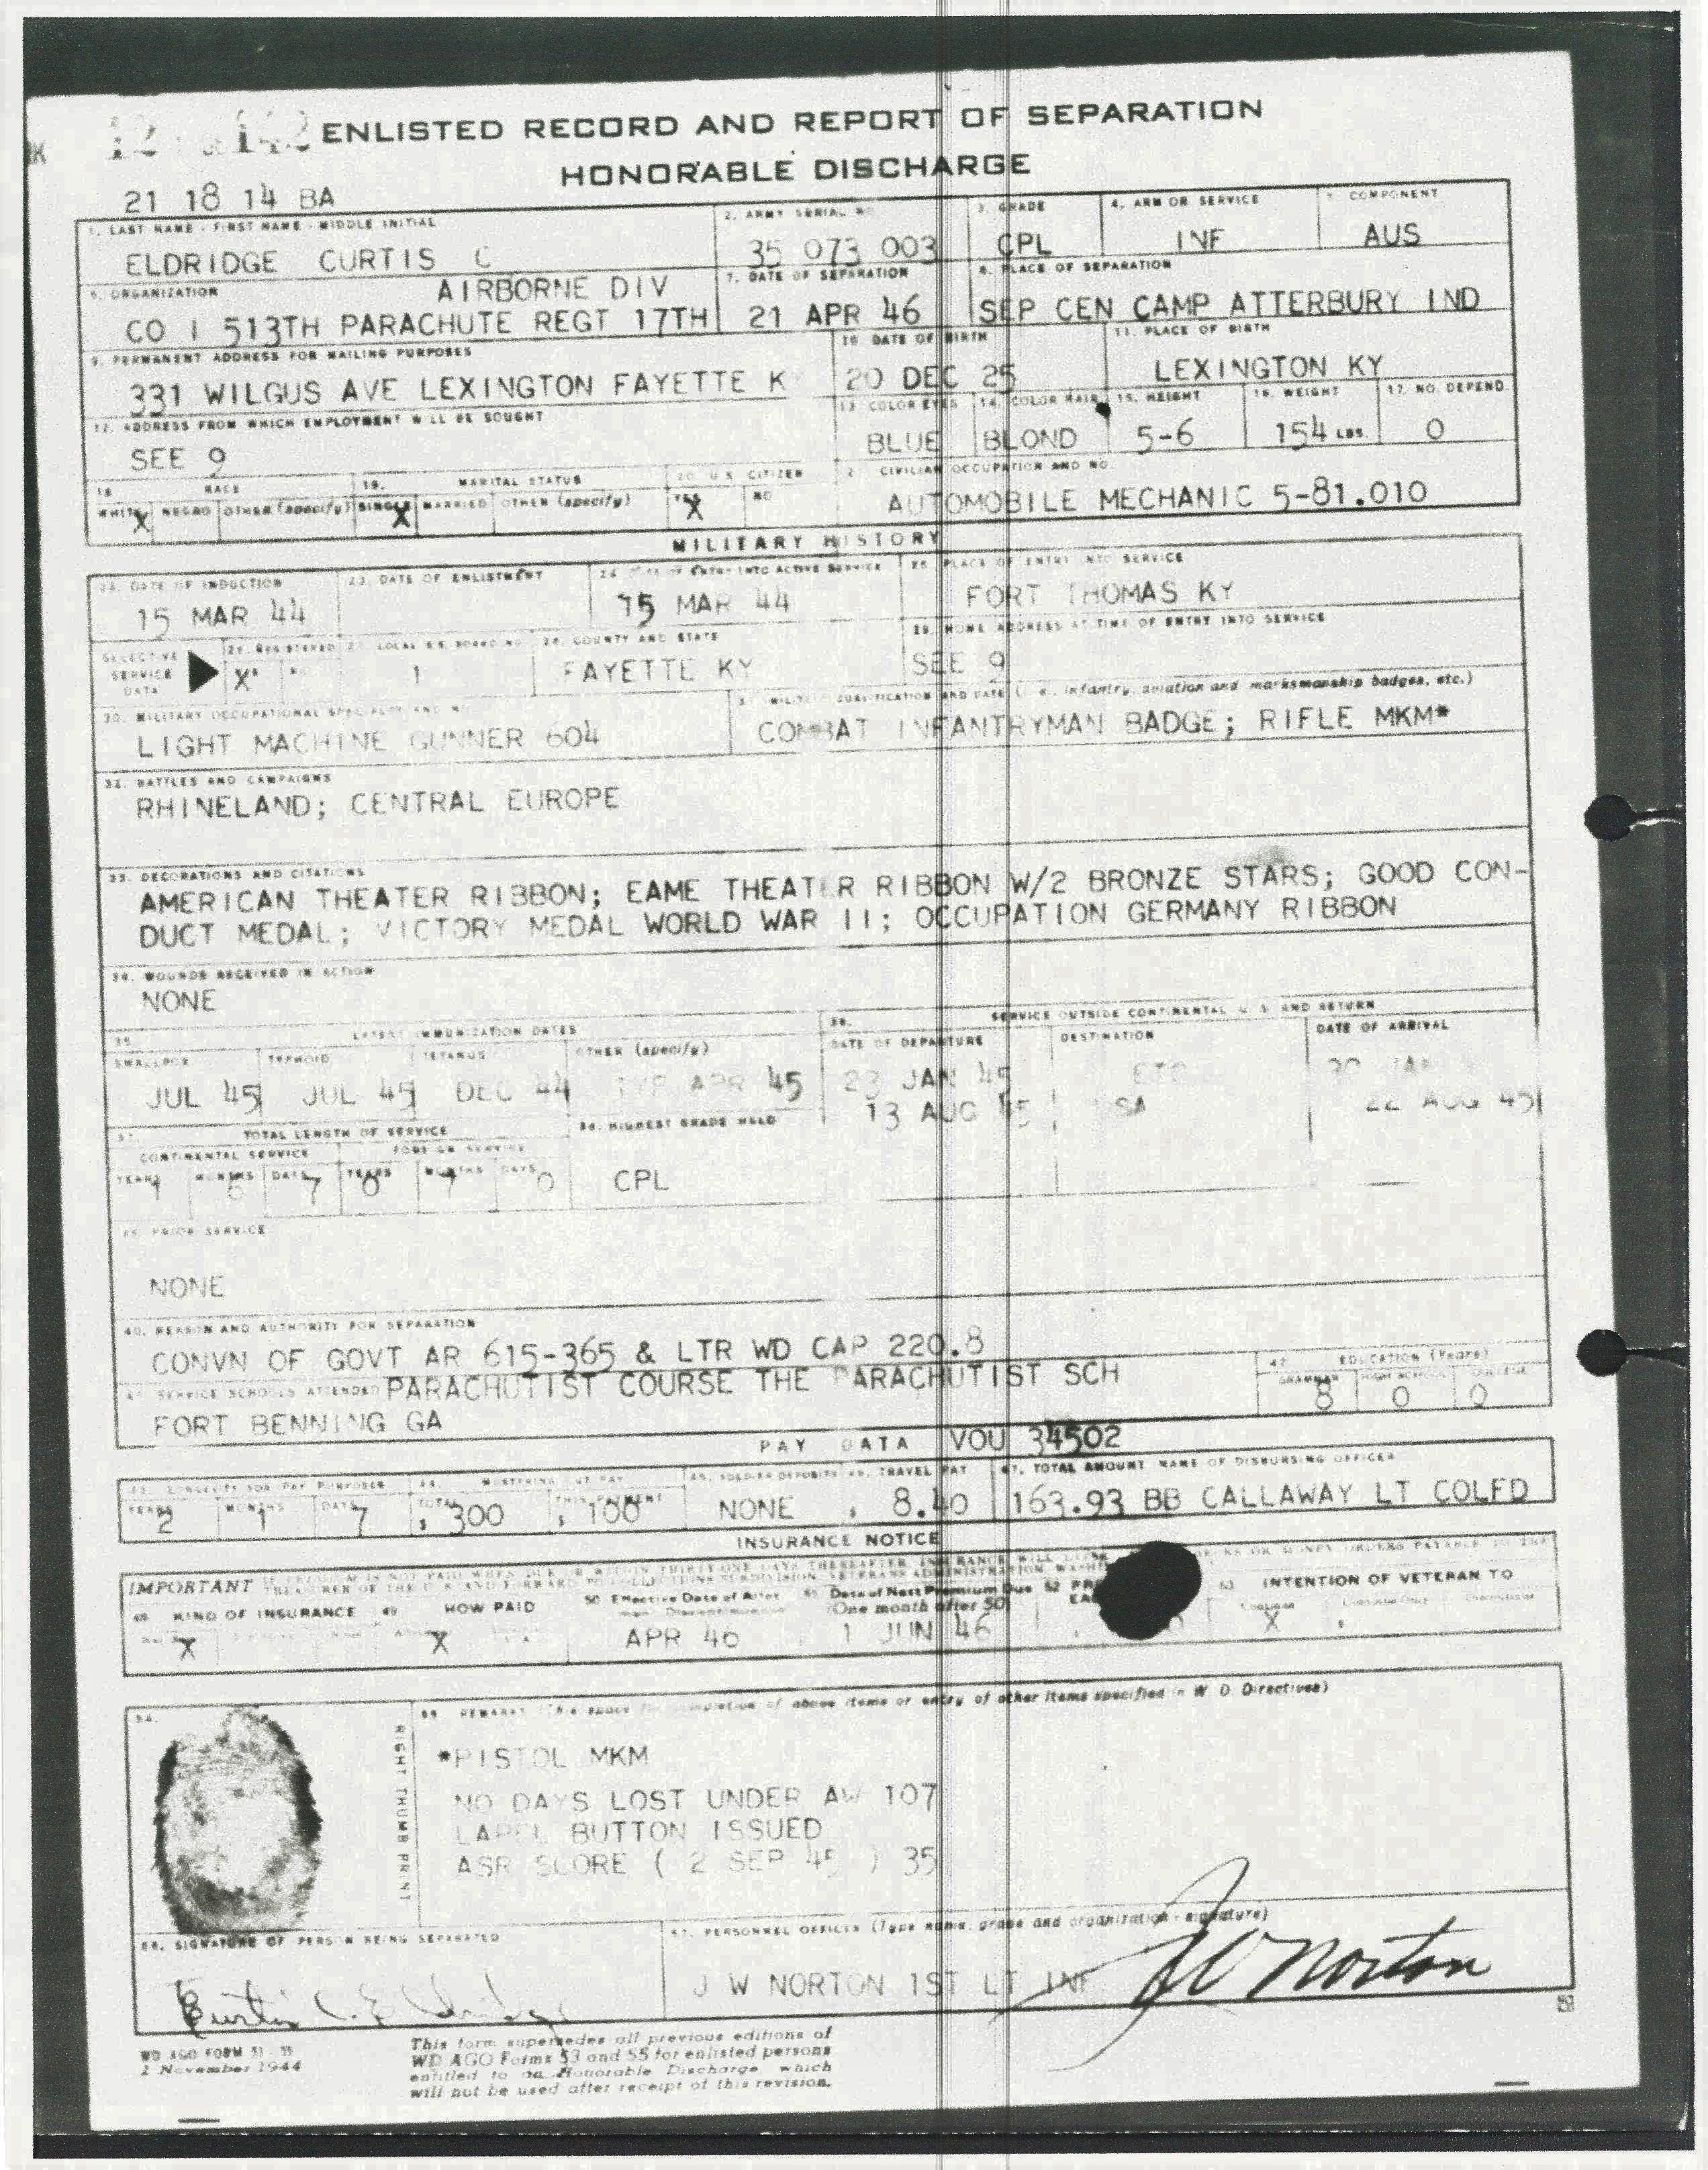 ENLISTED RECORD AND REPORT OF SEPARATION
HONORABLE DISCHARGE
21 18 14 BA
1. LAST NAME - FIRST NAME - MIDDLE INITIAL
ELDRIDGE CURTIS C
2. ARMY SERIAL NO.
35 073 003
3. GRADE
CPL
4. ARM OR SERVICE
INF
5. COMPONENT
AUS
6. ORGANIZATION
AIRBORNE DIV
CO I 513TH PARACHUTE REGT 17TH
7. DATE OF SEPARATION
21 APR 46
8. PLACE OF SEPARATION
SEP CEN CAMP ATTERBURY IND
9. PERMANENT ADDRESS FOR MAILING PURPOSES
331 WILGUS AVE LEXINGTON FAYETTE K
10. DATE OF BIRTH
20 DEC 25
11. PLACE OF BIRTH
LEXINGTON KY
12. ADDRESS FROM WHICH EMPLOYMENT WILL BE SOUGHT
SEE 9
13. COLOR EYES
BLUE
14. COLOR HAIR
BLOND
15. HEIGHT
5-6
16. WEIGHT
154 LBS.
17. NO. DEPEND.
0
18. RACE
WHITE X NEGRO OTHER (specify)
19. MARITAL STATUS
SINGLE X MARRIED OTHER (specify)
20. U.S. CITIZEN
YES X NO
21. CIVILIAN OCCUPATION AND NO.
AUTOMOBILE MECHANIC 5-81.010
MILITARY HISTORY
22. DATE OF INDUCTION
15 MAR 44
23. DATE OF ENLISTMENT
24. DATE OF ENTRY INTO ACTIVE SERVICE
15 MAR 44
25. PLACE OF ENTRY INTO SERVICE
FORT THOMAS KY
SELECTIVE SERVICE DATA
26. REGISTERED
X
27. LOCAL S.S. BOARD NO.
1
28. COUNTY AND STATE
FAYETTE KY
29. HOME ADDRESS AT TIME OF ENTRY INTO SERVICE
SEE 9
30. MILITARY OCCUPATIONAL SPECIALTY AND NO.
LIGHT MACHINE GUNNER 604
31. MILITARY QUALIFICATION AND DATE (i.e., infantry, aviation and marksmanship badges, etc.)
COMBAT INFANTRYMAN BADGE; RIFLE MKM*
32. BATTLES AND CAMPAIGNS
RHINELAND; CENTRAL EUROPE
33. DECORATIONS AND CITATIONS
AMERICAN THEATER RIBBON; EAME THEATER RIBBON W/2 BRONZE STARS; GOOD CON-
DUCT MEDAL; VICTORY MEDAL WORLD WAR II; OCCUPATION GERMANY RIBBON
34. WOUNDS RECEIVED IN ACTION
NONE
35. LATEST IMMUNIZATION DATES
SMALLPOX TYPHOID TETANUS OTHER (specify)
JUL 45 JUL 45 DEC 44 TYP APR 45
36. SERVICE OUTSIDE CONTINENTAL U.S. AND RETURN
DATE OF DEPARTURE DESTINATION DATE OF ARRIVAL
23 JAN 45 ETO 30 JAN
13 AUG 45 SA 22 AUG 45
37. TOTAL LENGTH OF SERVICE
CONTINENTAL SERVICE FOREIGN SERVICE
YEARS MONTHS DAYS YEARS MONTHS DAYS
1 6 7 0 7 0
38. HIGHEST GRADE HELD
CPL
39. PRIOR SERVICE
NONE
40. REASON AND AUTHORITY FOR SEPARATION
CONVN OF GOVT AR 615-365 & LTR WD CAP 220.8
41. SERVICE SCHOOLS ATTENDED PARACHUTIST COURSE THE PARACHUTIST SCH
FORT BENNING GA
42. EDUCATION (Years)
GRAMMAR HIGH SCHOOL COLLEGE
8 0 0
PAY DATA VOU 34502
43. LONGEVITY FOR PAY PURPOSES
YEARS MONTHS DAYS
2 1 7
44. MUSTERING OUT PAY
TOTAL THIS PAYMENT
$ 300 $ 100
45. SOLDIER DEPOSITS
NONE
46. TRAVEL PAY
8.40
47. TOTAL AMOUNT NAME OF DISBURSING OFFICER
163.93 BB CALLAWAY LT COLFD
INSURANCE NOTICE
IMPORTANT
48. KIND OF INSURANCE
X
49. HOW PAID
X
50. Effective Date of Allotment Discontinuance
APR 46
51. Date of Next Premium Due
(One month after 50)
1 JUN 46
52.
53. INTENTION OF VETERAN TO
X
54.
RIGHT THUMB PRINT
55. REMARKS (This space for completion of above items or entry of other items specified in W. D. Directives)
*PISTOL MKM
NO DAYS LOST UNDER AW 107
LAPEL BUTTON ISSUED
ASR SCORE ( 2 SEP 45 ) 35
56. SIGNATURE OF PERSON BEING SEPARATED
Curtis C. Eldridge
57. PERSONNEL OFFICER (Type name, grade and organization - signature)
J W NORTON 1ST LT INF
JW Norton
WD AGO FORM 53 - 55
1 November 1944
This form supersedes all previous editions of
WD AGO Forms 53 and 55 for enlisted persons
entitled to an Honorable Discharge, which
will not be used after receipt of this revision.